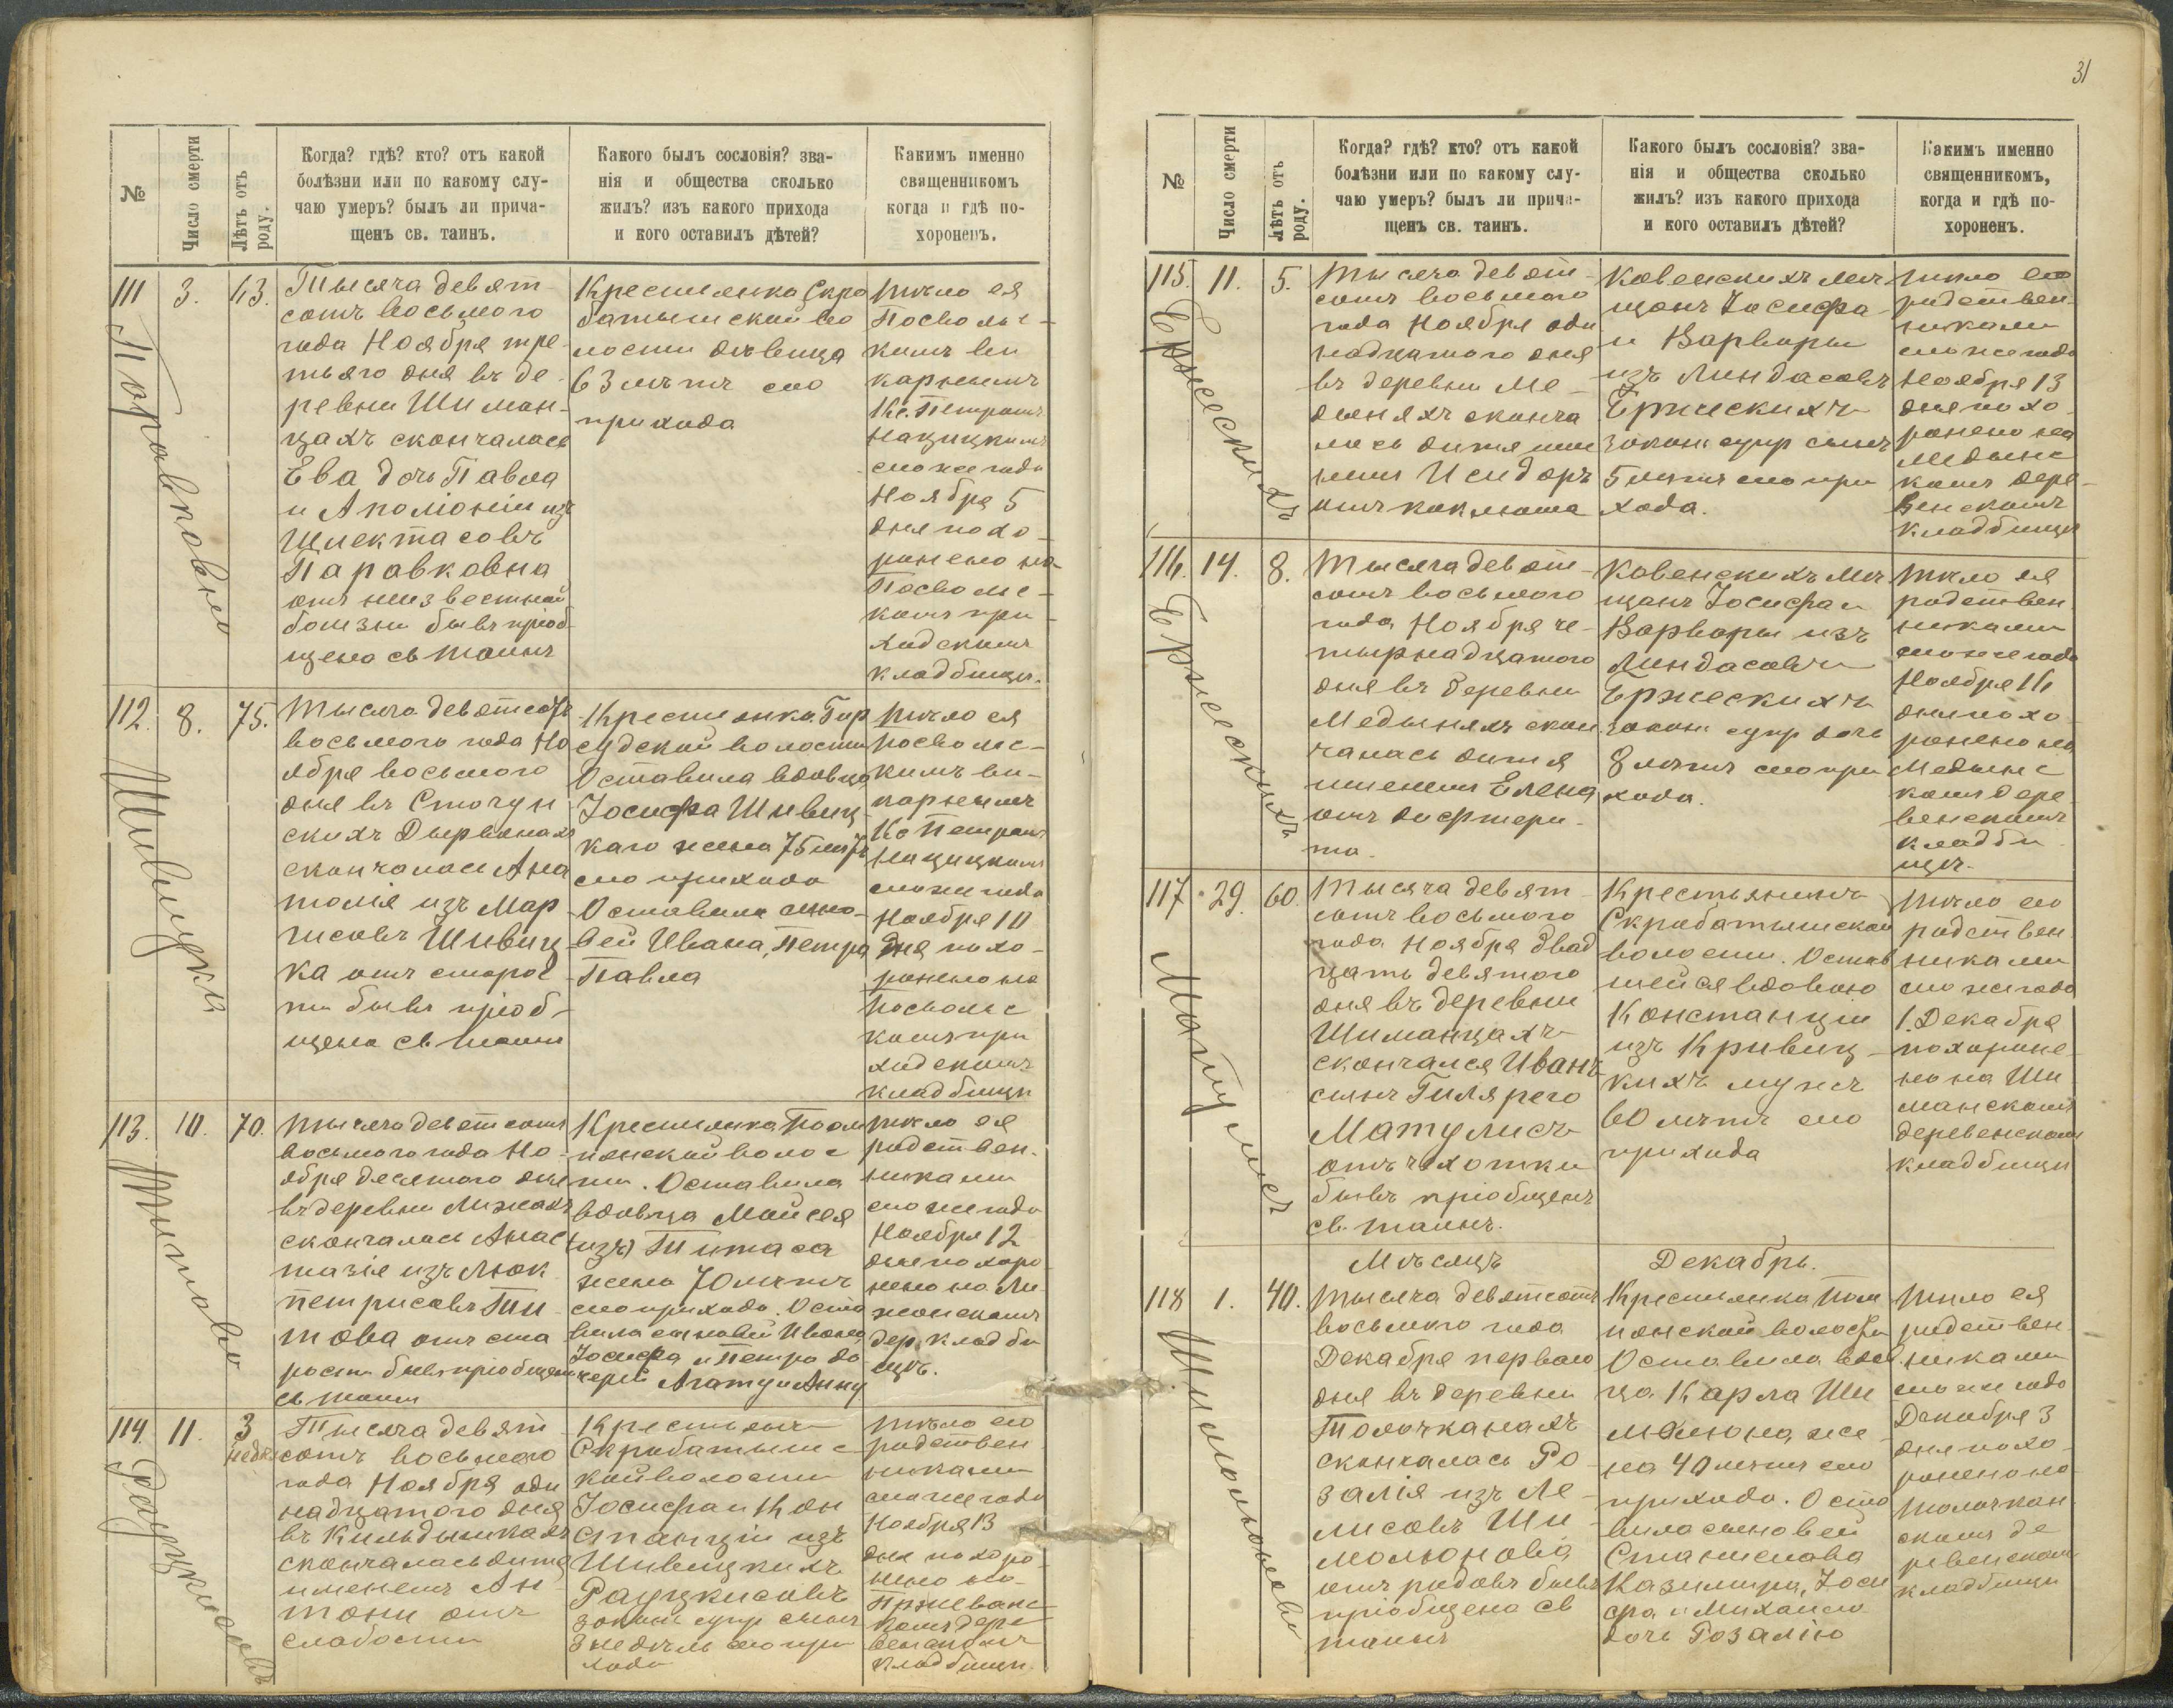 31
№
Число смерти
Лѣтъ отъ
роду.
Когда? гдѣ? кто? отъ какой
болѣзни или по какому слу-
чаю умеръ? былъ ли прича-
щенъ св. таинъ.
Какого былъ сословія? зва-
нія и общества сколько
жилъ? изъ какого прихода
и кого оставилъ дѣтей?
Какимъ именно
священникомъ
когда и гдѣ по-
хороненъ.
111
3.
63.
Тысяча девят-
сотъ восьмого
года Ноября тре-
тьяго дня въ де-
ревни Шиман-
цахъ скончалась
Ева дочь Павла
и Аполіоніи изъ
Шлектасовъ
Паравковна
отъ неизвестной
болезни бывъ пріоб-
щена св тайнъ
Крестьянка Скро
батышской во
лости дѣвица
63 лѣтъ сего
прихода
тѣло ея
Посвольс-
кимъ ви
карнымъ
Кс. Петромъ
Нацицкимъ
сего же года
Ноября 5
дня похо-
ронено на
Посвольс-
комъ при-
ходскомъ
кладбищи.
112.
8.
75.
Тысяча девятсотъ
восьмого года Но
ября восьмого
дня въ Стачун
скихъ Дырвонахъ
скончалась Ана
толія изъ Мар
тисовъ Шивиц
ка отъ старос
ти бывъ пріоб-
щена св тайн
Крестьянка Гир
судской волости
Оставила вдовца
Іосифа Шивиц-
каго жена 75 лѣтъ
сего прихода
Оставила сыно-
вей Ивана, Петра
Павла
тѣло ея
Посвольс-
кимъ ви-
карнымъ
Кс Петромъ
Нацицкимъ
сего же года
Ноября 10
дня похо-
ронено на
Посвольс
комъ при
ходскомъ
кладбищи
113.
10.
70.
Тысяча девятсотъ
восьмого года Но-
ября десятого дня
въ деревни Лижахъ
скончалась Анас
тазія изъ Люк
петрисовъ Ти
това отъ ста
рости бывъ пріобщена
св тайн
Крестьянка Помп
янской волос
ти. Оставила
вдовца Мойсея
Титаса
жена 70 лѣтъ
сего прихода. Оста
вила сыновей Ивана,
Іосифа и Петра до
черей Агату и Анну
тѣло ея
родствен-
никами
сего же года
Ноября 12
дня похоро
нено на Ли
жанскомъ
дер. кладби
щѣ.
114.
11.
3
недѣл
Тысяча девят
сотъ восьмого
года Ноября оди
надцатого дня
въ Кильдышкахъ
скончалась дитя
именемъ Ан-
тони отъ
слабости
Крестьянъ
Скробатышс
кой волости
Іосифа и Кон
станціи изъ
Шивицкихъ
Рауцкисовъ
законн супр сынъ
3 недѣль сего при
хода
тѣло его
родствен
никами
сего же года
Ноября 13
дня похоро-
нено на
комъ дере
венскомъ
кладбищи.
№
Число смерти
Лѣтъ отъ
роду.
Когда? гдѣ? кто? отъ какой
болѣзни или по какому слу-
чаю умеръ? былъ ли прича-
щенъ св. таинъ.
Какого былъ сословія? зва-
нія и общества сколько
жилъ? изъ какого прихода
и кого оставилъ дѣтей?
Какимъ именно
священникомъ,
когда и гдѣ по-
хороненъ.
115.
11.
5.
Тысяча девят-
сотъ восьмого
года Ноября оди
надцатого дня
въ деревни Ме-
дыняхъ сконча
лась дитя име
немъ Исидоръ
отъ коклюша
Ковенскихъ мѣ
щанъ Іосифа
и Варвары
изъ Линдасовъ
Ержескихъ
законн супр сынъ
5 лѣтъ сего при
хода.
тѣло его
родствен-
никами
сего же года
Ноября 13
дня похо
ронено на
Медынс
комъ дере-
венскомъ
кладбищи
Ержескихъ
116.
14.
8.
Тысяча девят-
сотъ восьмого
года Ноября че-
тырнадцатого
дня въ деревни
Медыняхъ скон
чалась дитя
именемъ Елена
отъ дифтери-
та.
Ковенскихъ мѣ
щанъ Іосифа и
Варвары изъ
Линдасовъ
Ержескихъ
законн супр дочь
8 лѣтъ сего при
хода.
тѣло ея
родствен
никами
сего же года
Ноября 16
дня похо
ронено на
Медынс
комъ дере
венскомъ
кладби
щѣ.
Ержескихъ
117
29.
60.
Тысяча девят-
сотъ восьмого
года Ноября двад
цать девятого
дня въ деревни
Шиманцахъ
скончался Иванъ
сынъ Гилярего
Матулисъ
отъ чахотки
бывъ пріобщенъ
св. тайнъ.
Крестьянинъ
Скробатышской
волости. Остав
шейся вдовою
Констанціи
изъ Кривиц-
кихъ мужъ
60 лѣтъ сего
прихода
тѣло его
родствен
никами
сего же года
1. Декабря
похороне-
но на Ши
манскомъ
деревенскомъ
кладбищи
Матулисъ
Мѣсяцъ
Декабрь.
118
1.
40.
Тысяча девятсотъ
восьмого года
Декабря первого
дня въ деревни
Толочканахъ
скончалась Ро-
залія изъ Ле-
лисовъ Ши
мольонова
отъ родовъ бывъ
пріобщена св
тайнъ
Крестьянка Помп
янской волости
Оставила вдов
ца Карла Ши
мольона же-
на 40 лѣтъ сего
прихода. Оста
вила сыновей
Станислава
Казимира, Іоси
фа и Михаила
дочь Розалію
тѣло ея
родствен-
никами
сего же года
Декабря 3
дня похо-
ронено на
Толочкан
скомъ де
ревенскомъ
кладбищи